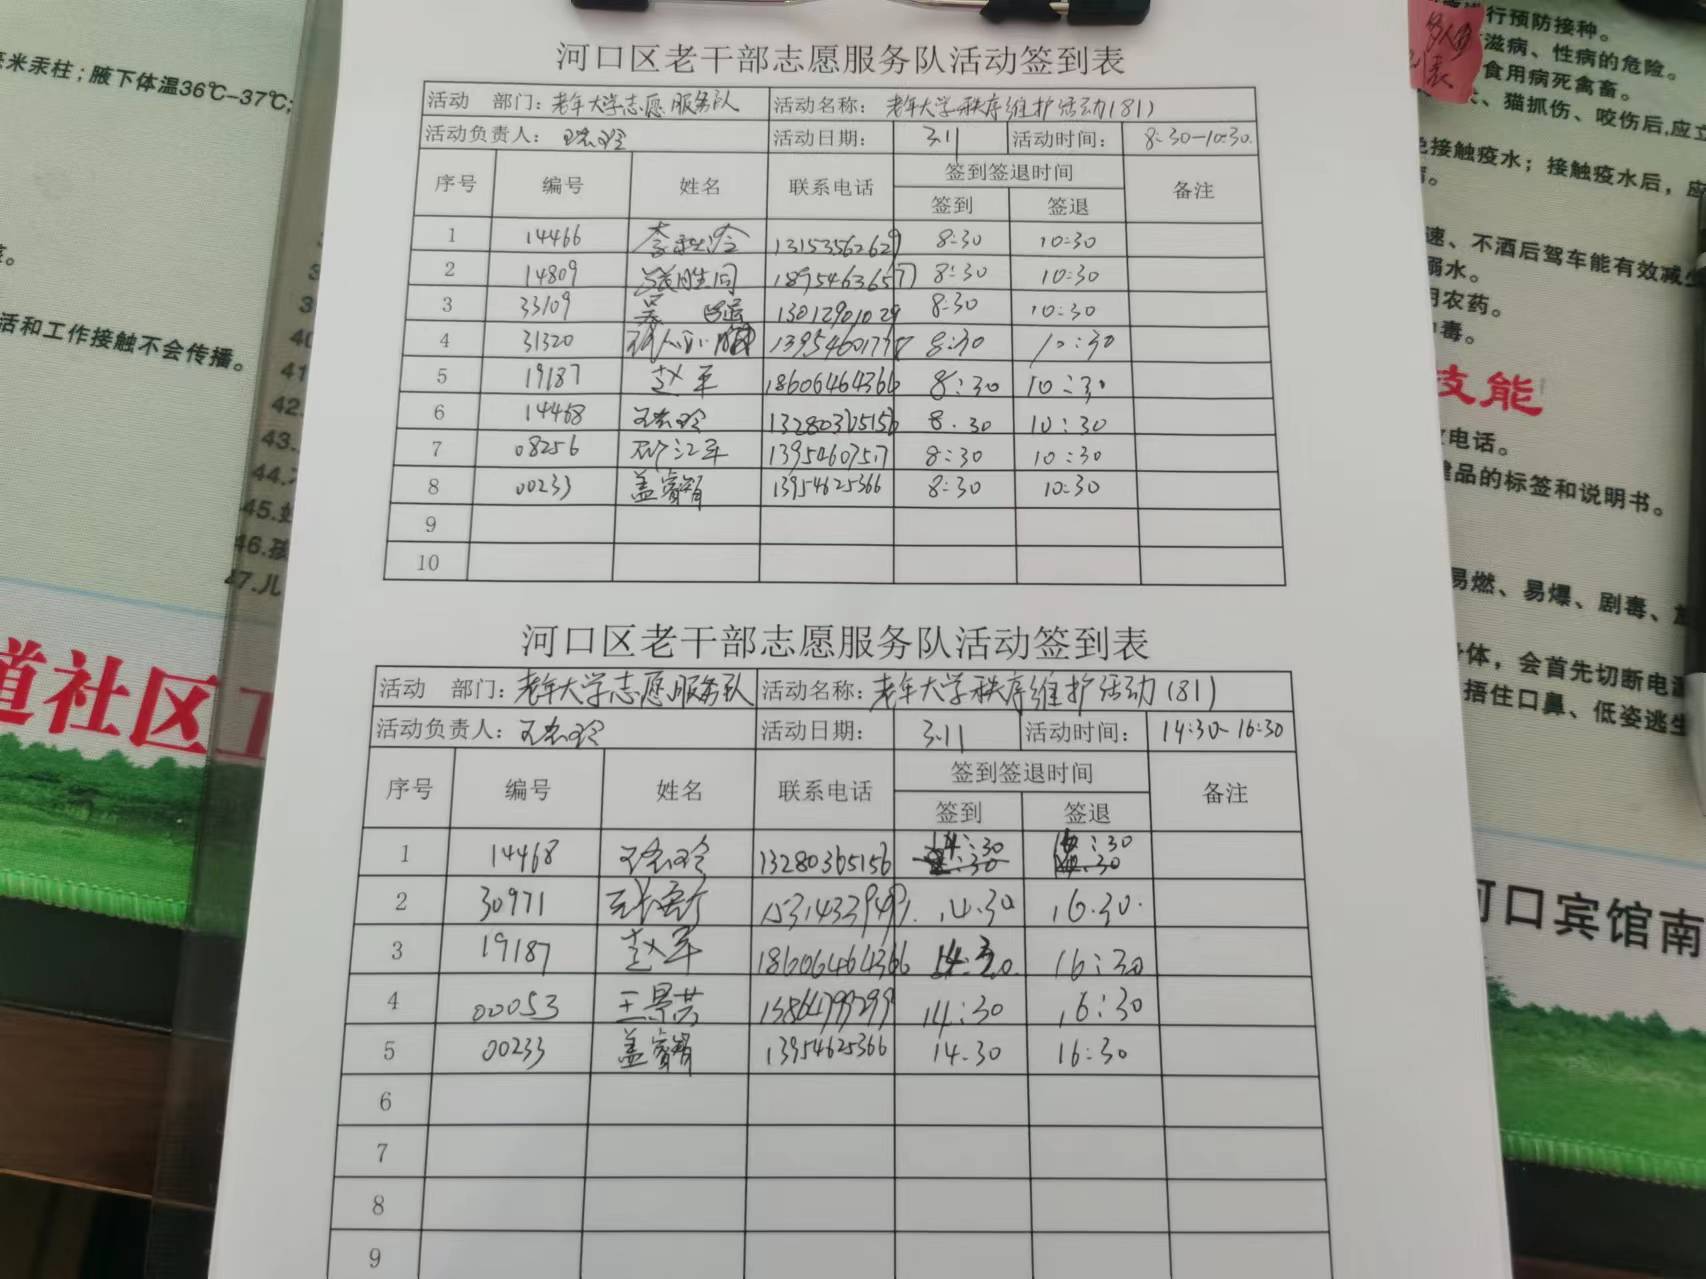 毫米汞柱；腋下体温36℃-37℃；
活和工作接触不会传播。
41
42.
43.
44.
45.
46.
47.儿
道社区工
行预防接种。
滋病、性病的危险。
食用病死禽畜。
、猫抓伤、咬伤后,应立
接触疫水；接触疫水后，应
速、不酒后驾车能有效减少
溺水。
农药。
中毒。
技能
电话。
品的标签和说明书。
易燃、易爆、剧毒、放
体，会首先切断电源
捂住口鼻、低姿逃生
河口宾馆南
河口区老干部志愿服务队活动签到表
活动 部门：老年大学志愿服务队 活动名称：老年大学秩序维护活动(81)
活动负责人： 活动日期： 3.11 活动时间： 8:30-10:30.
序号 编号 姓名 联系电话 签到签退时间 备注
签到 签退
1 14466 13153562629 8:30 10:30
2 14809 18954636577 8:30 10:30
3 33109 13012901029 8:30 10:30
4 31320 8:30 10:30
5 19187 赵军 18606464366 8:30 10:30
6 14468 13280365156 8.30 10:30
7 08256 8:30 10:30
8 00233 盖 13954625366 8:30 10:30
9
10
河口区老干部志愿服务队活动签到表
活动 部门：老年大学志愿服务队 活动名称：老年大学秩序维护活动(81)
活动负责人： 活动日期： 3.11 活动时间： 14:30-16:30
序号 编号 姓名 联系电话 签到签退时间 备注
签到 签退
1 14468 13280365156 14:30 16:30
2 30971 14.30 16.30.
3 19187 赵军 18606464366 14:30. 16:30
4 00053 王景芸 14:30 16:30
5 00233 盖 13954625366 14.30 16:30
6
7
8
9